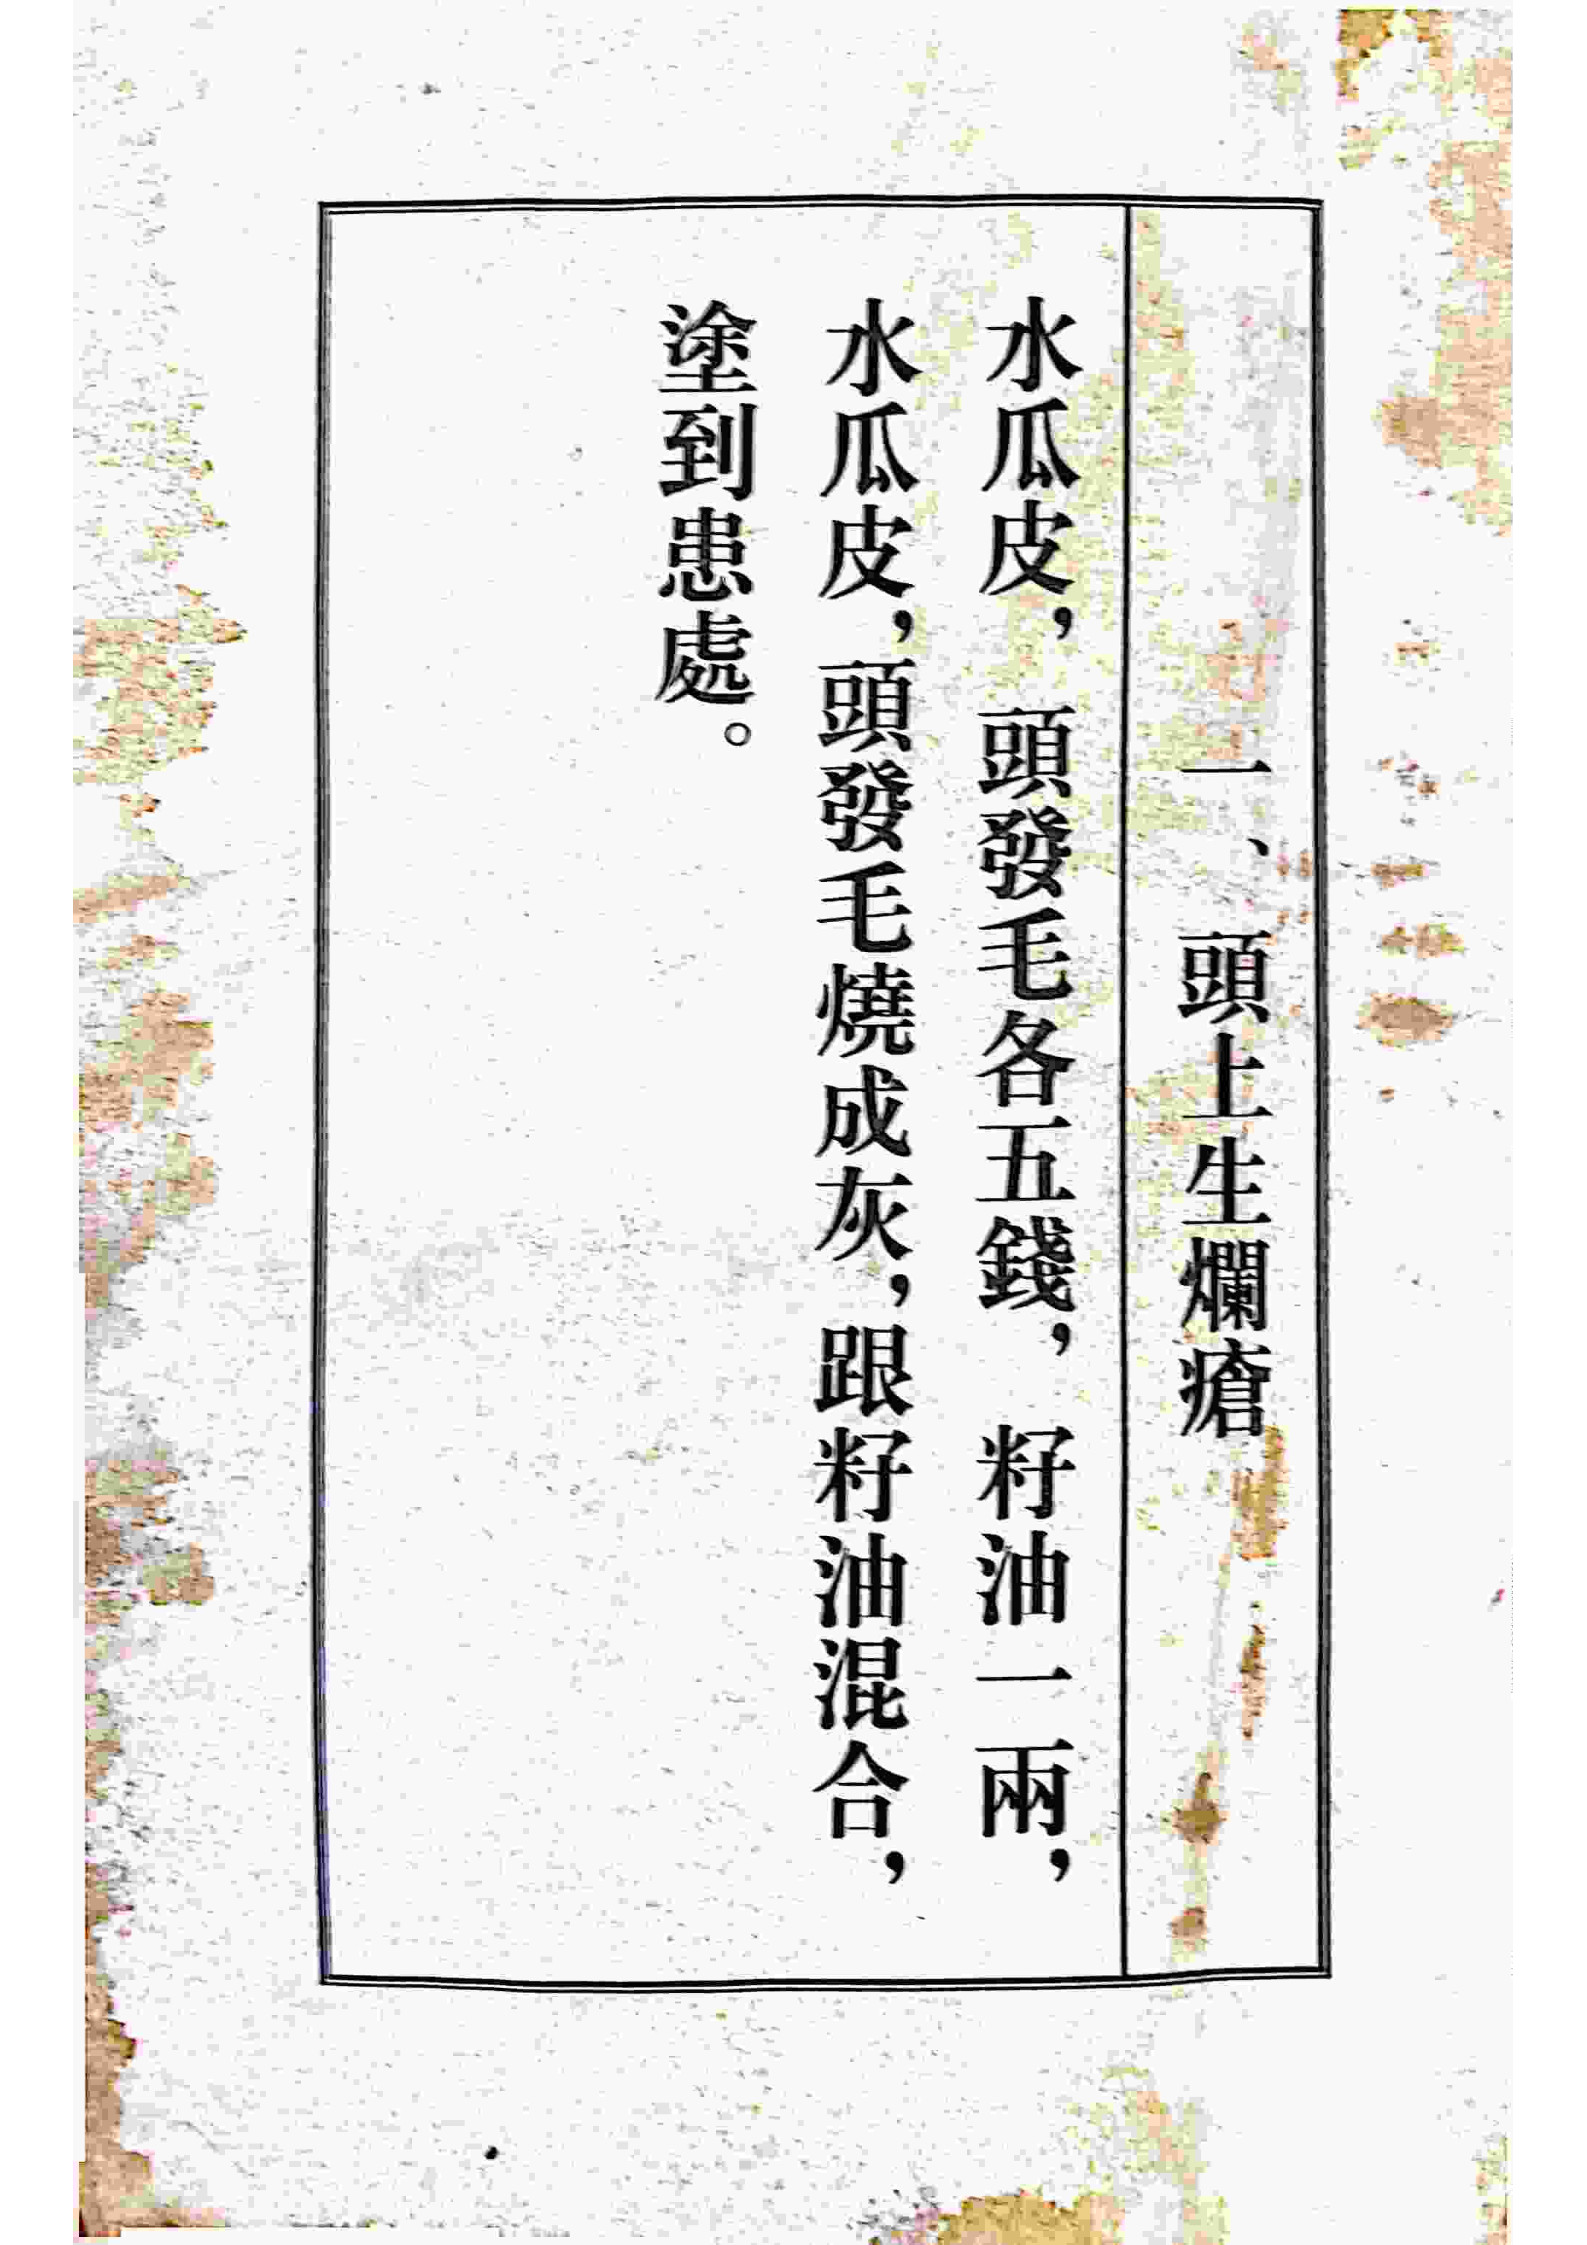 一、頭上生爛瘡
水瓜皮，頭發毛各五錢，籽油一兩，
水瓜皮，頭發毛燒成灰，跟籽油混合，
塗到患處。